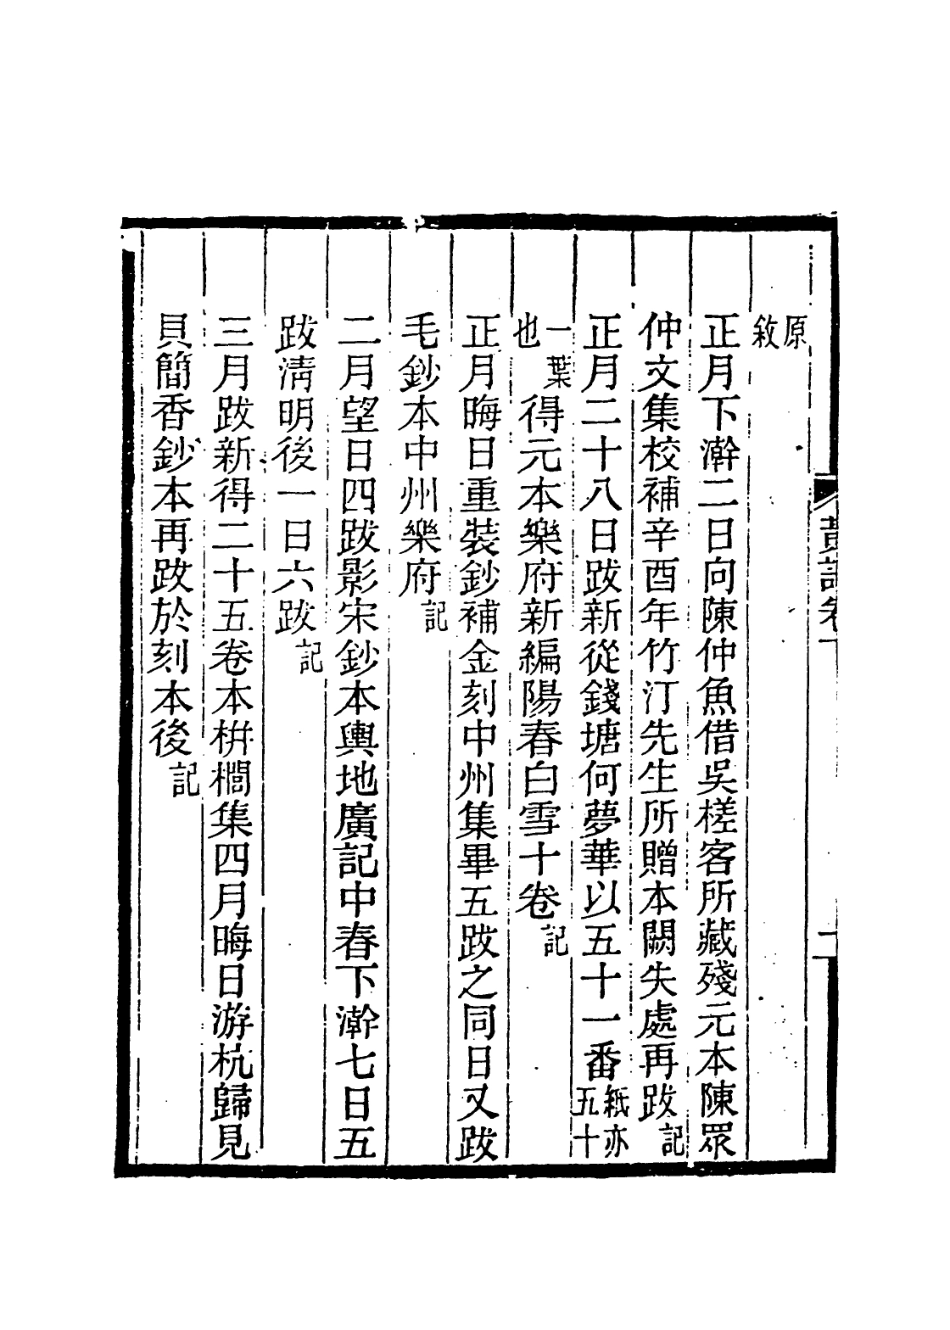 原敘
正月下澣二日向陳仲魚借吳槎客所藏殘元本陳眾
仲文集校補辛酉年竹汀先生所贈本闕失處再跋記
正月二十八日跋新從錢塘何夢華以五十一番紙亦五十
一葉也得元本樂府新編陽春白雪十卷記
正月晦日重裝鈔補金刻中州集畢五跋之同日又跋
毛鈔本中州樂府記
二月望日四跋影宋鈔本輿地廣記中春下澣七日五
跋清明後一日六跋記
三月跋新得二十五卷本栟櫚集四月晦日游杭歸見
貝簡香鈔本再跋於刻本後記
黃 卷
二